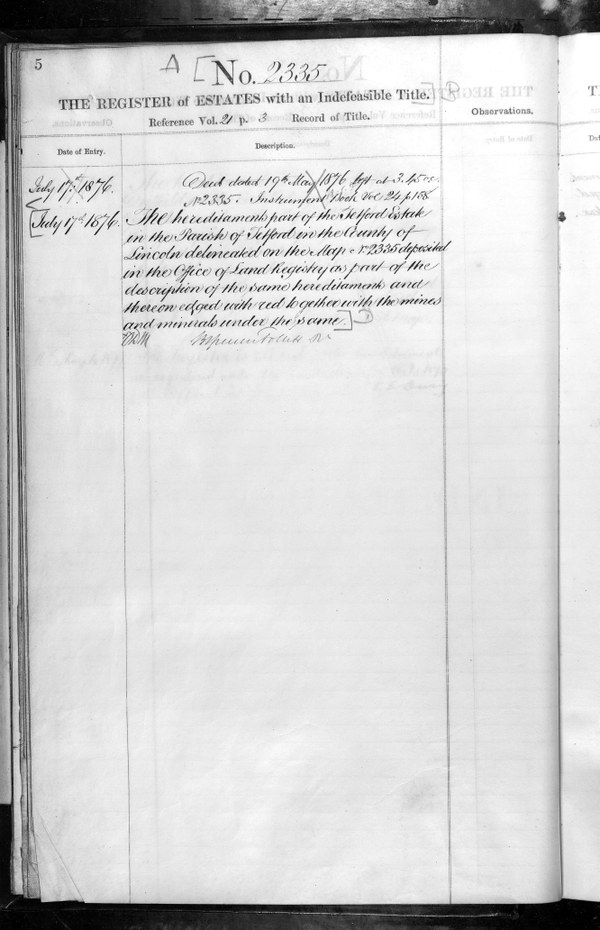 5
A [No. 2335
THE REGISTER of ESTATES with an Indefeasible Title.] B
Reference Vol. 21 p. 3 Record of Title.
Observations.
Date of Entry.
Description.
July 17th 1876.
Deed dated 19th May 1876 at 3.45
No 2335. Instrument Book Vol 24 p 158
[July 17th 1876.
The hereditaments part of the Tetford Estate
in the Parish of Tetford in the County of
Lincoln delineated on the Map No 2335 deposited
in the Office of Land Registry as part of the
description of the same hereditaments and
thereon edged with red together with the mines
and minerals under the same.]